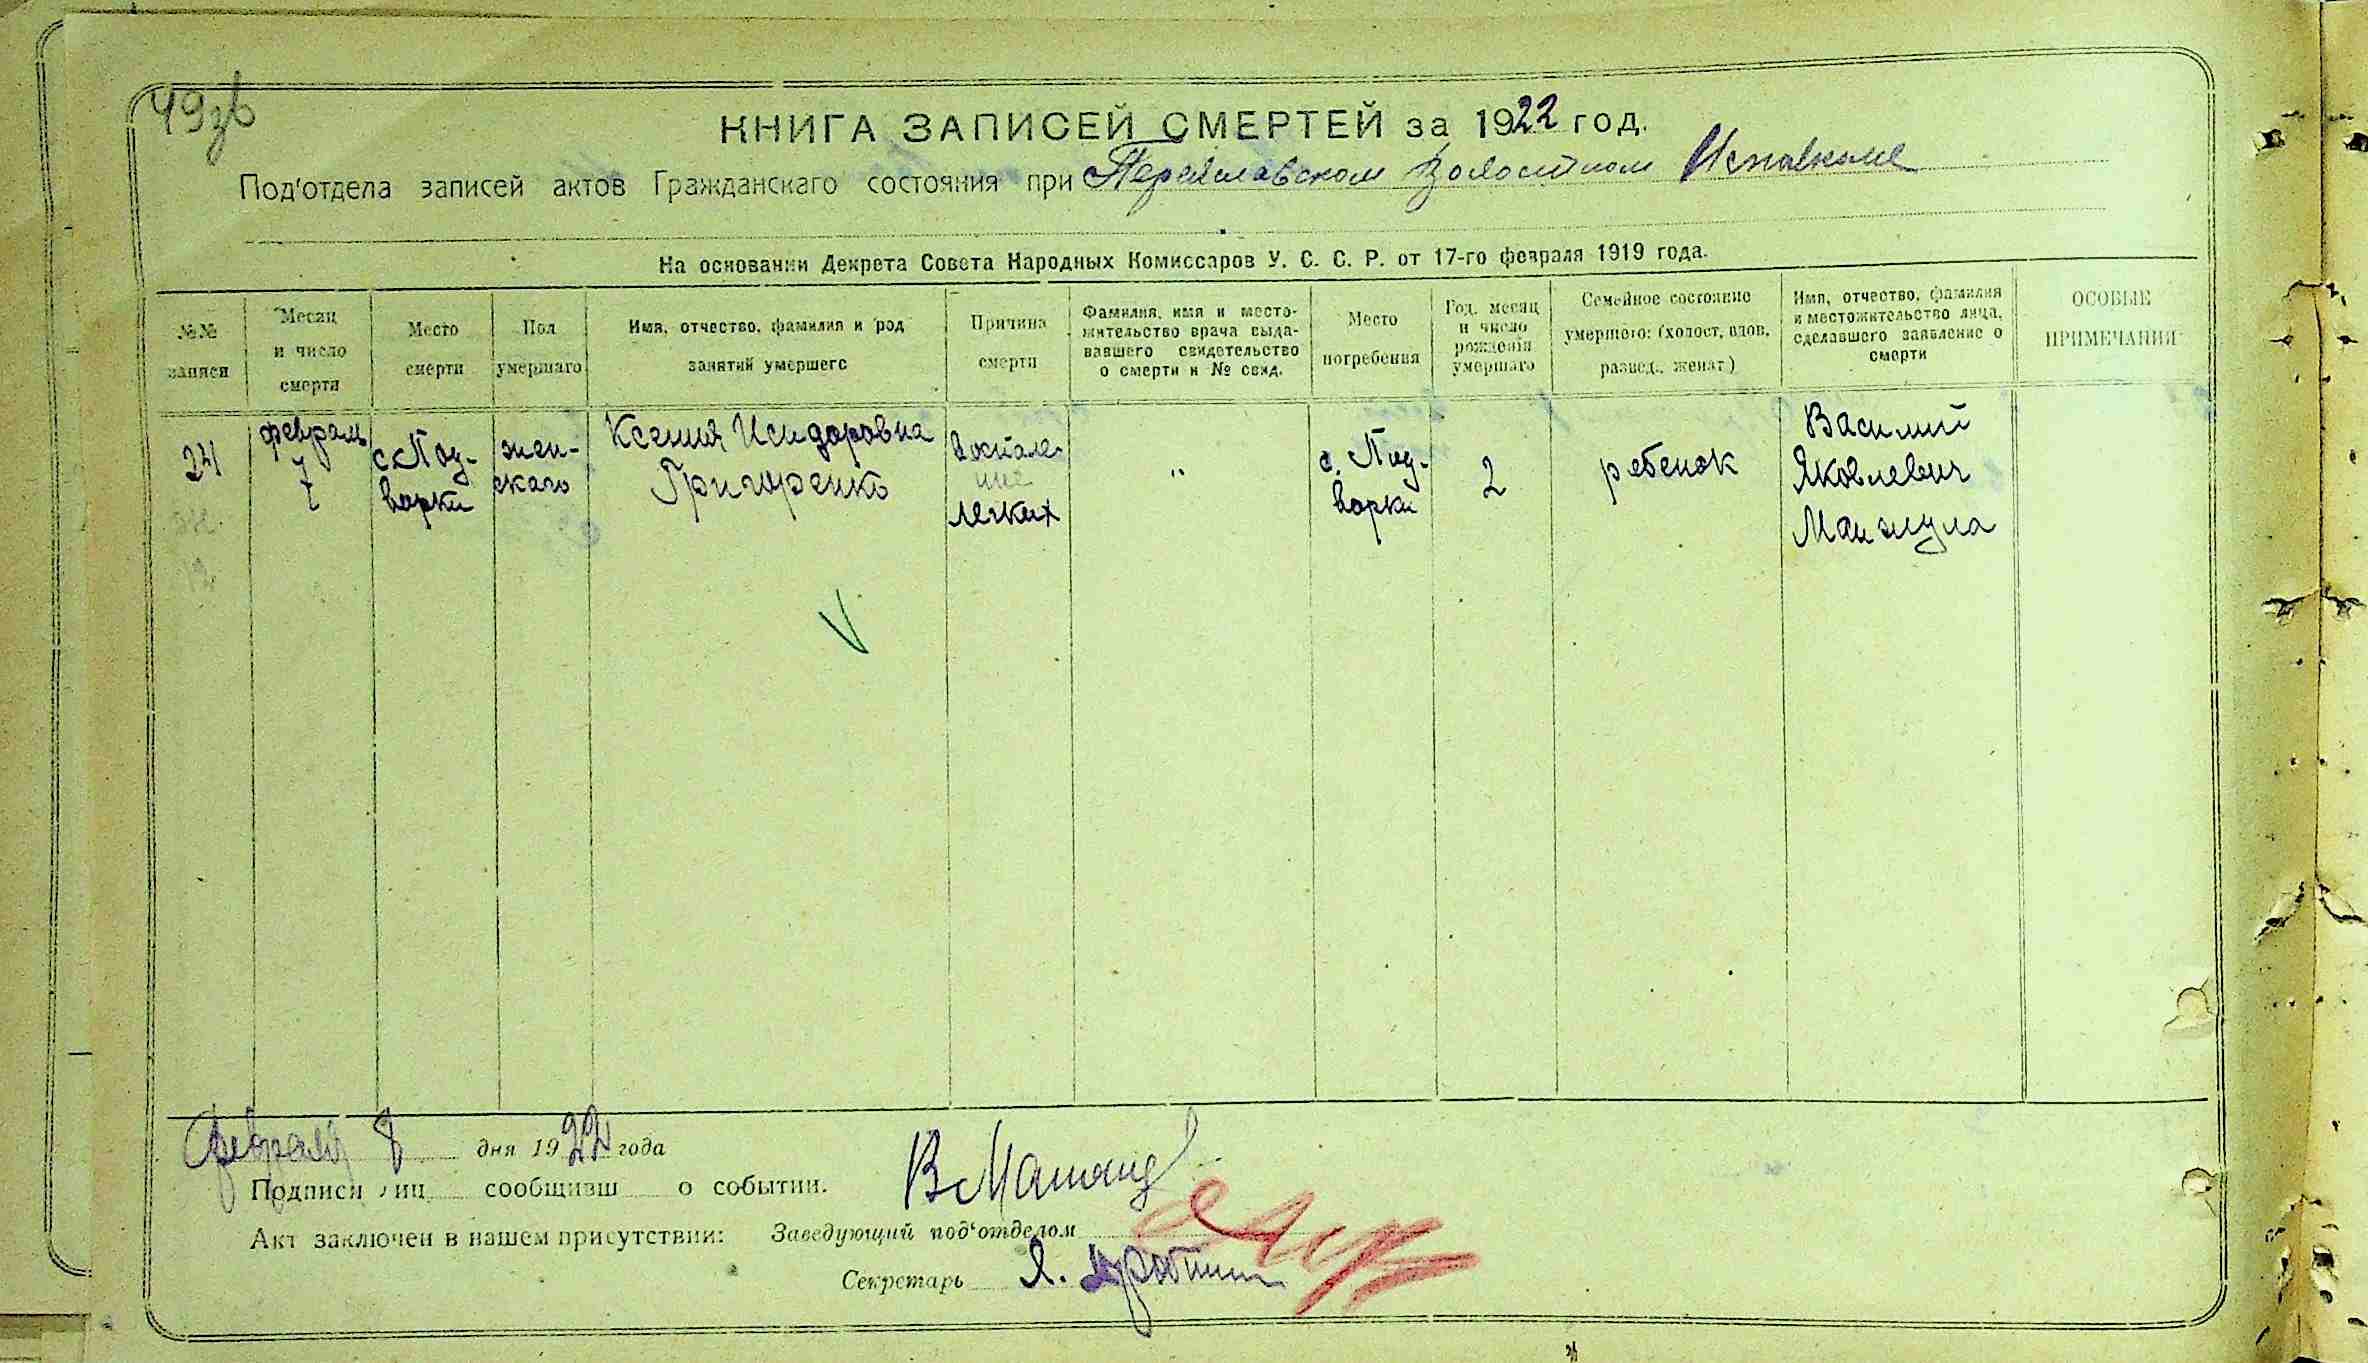 КНИГА ЗАПИСЕЙ СМЕРТЕЙ за 1922 год.
Под'отдела записей актов Гражданскаго состояния при Переяславском Волостном Исполкоме
На основании Декрета Совета Народных Комиссаров У. С. С. Р. от 17-го февраля 1919 года.
№№
записи
Месяц
и число
смерти
Место
смерти
Пол
умершаго
Имя, отчество, фамилия и род
занятий умершего
Причина
смерти
Фамилия, имя и место-
жительство врача выда-
вавшего свидетельство
о смерти и № свид.
Место
погребения
Год, месяц
и число
рождения
умершаго
Семейное состояние
умершего: (холост, вдов,
развед., женат)
Имя, отчество, фамилия
и местожительство лица,
сделавшего заявление о
смерти
ОСОБЫЕ
ПРИМЕЧАНИЯ
24
февраль
7
с. Под-
ворки
жен-
скаго
Ксения Исидоровна
Григоренко
Воспале-
ние
легких
"
с. Под-
ворки
2
ребенок
Василий
Яковлевич
Манжула
Февраля 8 дня 1922 года
Подписи лиц сообщивш о событии.
Акт заключен в нашем присутствии: Заведующий под'отделом
Секретарь Я.